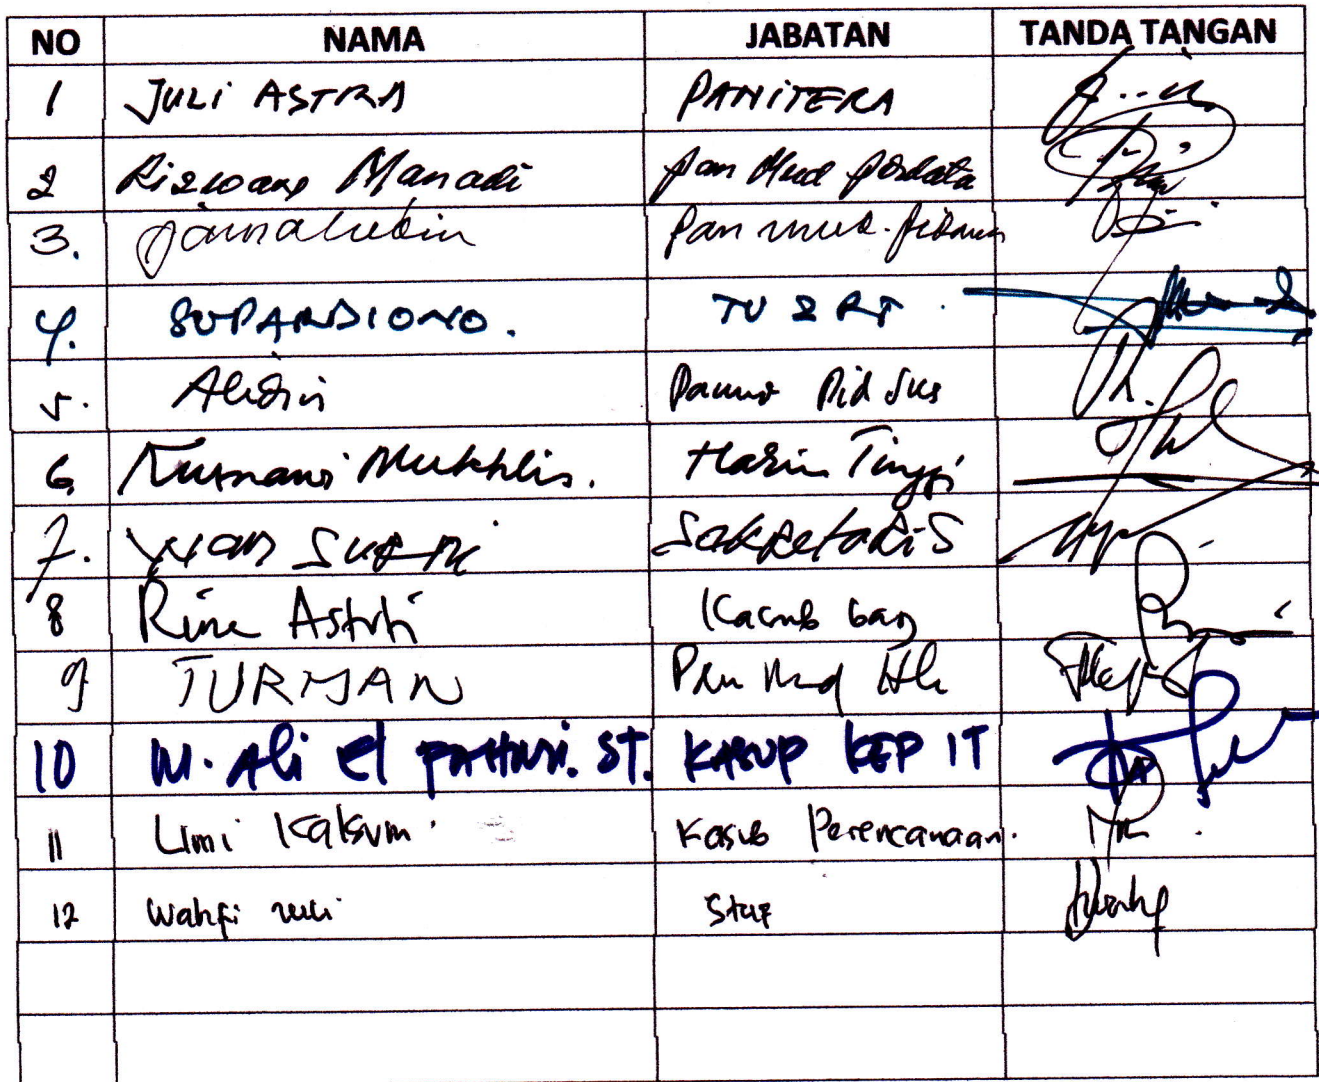 NO NAMA JABATAN TANDA TANGAN
1 JULI ASTRA PANITERA
2 Rizwans Manadi Pan Mud Perdata
3. Jamaludin Pan mud. Pidana
4. SUPARDIONO. TU & RT.
5. Alidin Panmud Pid Sus
6 Kusnawi Mukhlis. Hakim Tinggi
7. WAN SURNI SekRetaRiS
8 Rina Astuti Kasub bag
9 TURMAN Pan Mud Hk
10 M. Ali El PAHMI. ST. KASUP KEP IT
11 Umi Kalsum. Kasub Perencanaan.
12 Wahfi Staf